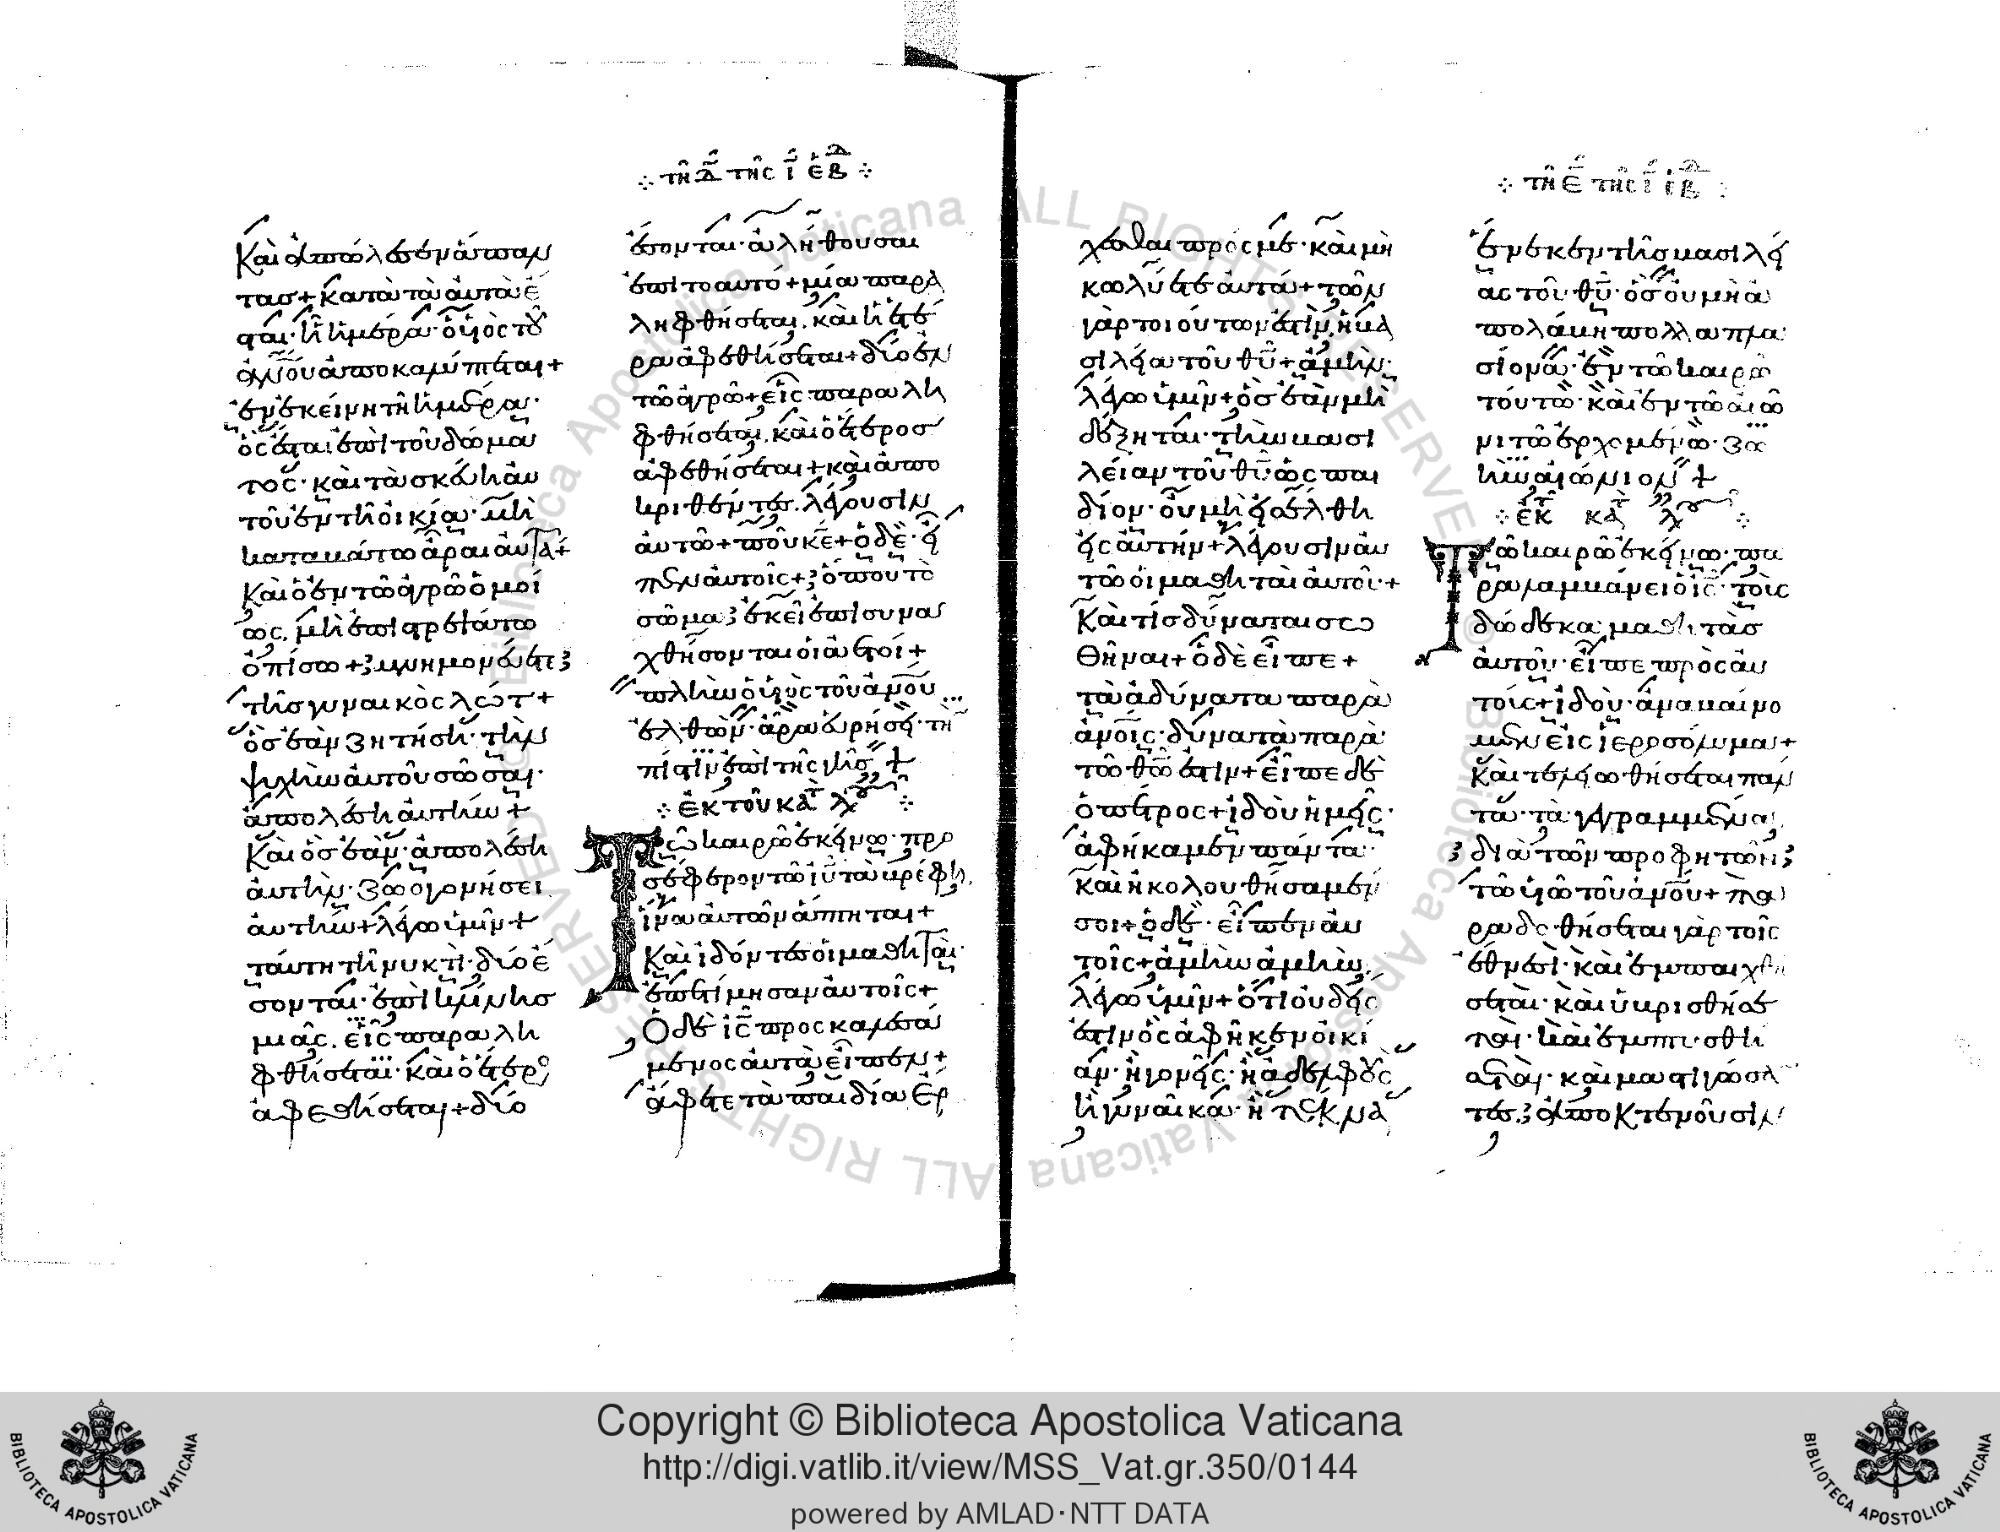 τῆ δ̄ τῆς ῑ ἑβδ
Καὶ ἀπώλεσεν ἅπαν
τας + κατὰ τὰ αὐτὰ ἔ
σται· ἧ ἡμέρα· ὁ υἱὸς τοῦ
ἀν̅ο̅υ̅ ἀποκαλύπτεται +
ἐν ἐκείνη τῆ ἡμέρα·
ὃς ἔσται ἐπὶ τοῦ δώμα
τος· καὶ τὰ σκεύη αὐ
τοῦ ἐν τῆ οἰκία· μὴ
καταβάτω ἆραι αὐτά +
Καὶ ὁ ἐν τῶ ἀγρῶ ὁμοί
ως, μὴ ἐπιστρεψάτω
ὀπίσω + μνημονεύετε
τῆς γυναικὸς λώτ +
ὃς ἐὰν ζητήση· τὴν
ψυχὴν αὐτοῦ σῶσαι·
ἀπολέση αὐτὴν +
Καὶ ὃς ἐὰν· ἀπολέση
αὐτὴν· ζωογονήσει
αὐτὴν + λέγω ὑμῖν +
ταύτη τῆ νυκτὶ· δύο ἔ
σονται· ἐπὶ κλίνης
μιᾶς. εἷς παραλη
φθήσεται· καὶ ὁ ἕτερος
ἀφεθήσεται + δύο
ἔσονται· ἀλήθουσαι
ἐπὶ τὸ αὐτό + μία παρα
ληφθήσεται, καὶ ἡ ἑτέ
ρα ἀφεθήσεται + δύο ἐν
τῶ ἀγρῶ + εἷς παραλη
φθήσεται, καὶ ὁ ἕτερος
ἀφεθήσεται + καὶ ἀπο
κριθέντες. λέγουσιν
αὐτῶ + ποῦ κ̅ε̅ + ὁ δὲ· εἶ
πεν αὐτοῖς + ὅπου τὸ
σῶμα ἐκεῖ ἐπισυνα
χθήσονται οἱ ἀετοί +
πλὴν ὁ υἱὸς τοῦ ἀν̅ο̅υ̅
ἐλθὼν· ἆρα εὑρήσει· τὴν
πίστιν ἐπὶ τῆς γῆς +
ἐκ τοῦ κατ λουκ
Τῶ καιρῶ ἐκείνω· προ
σέφερον τῶ ι̅υ̅ τὰ βρέφη,
ἵνα αὐτῶν ἅπτηται +
Καὶ ἰδόντες οἱ μαθηταὶ·
ἐπετίμησαν αὐτοῖς +
Ὁ δὲ ι̅ς̅ προσκαλεσά
μενος αὐτὰ εἶπεν +
ἄφετε τὰ παιδία ἔρ
τῆ ε̄ τῆς ῑ ἑβδ
χεσθαι πρός με· καὶ μὴ
κωλύετε αὐτά + τῶν
γὰρ τοιούτων ἐστὶν ἡ βα
σιλεία τοῦ θ̅υ̅ + ἀμὴν
λέγω ὑμῖν + ὃς ἐὰν μὴ
δέξηται· τὴν βασι
λείαν τοῦ θ̅υ̅ ὡς παι
δίον· οὐ μὴ εἰσέλθη
εἰς αὐτήν + λέγουσιν αὐ
τῶ οἱ μαθηταὶ αὐτοῦ +
Καὶ τίς δύναται σω
θῆναι + ὁ δὲ εἶπε +
τὰ ἀδύνατα παρὰ
ἀν̅ο̅ι̅ς̅· δύνατὰ παρὰ
τῶ θ̅ω̅ ἐστιν + εἶπε δὲ
ὁ πέτρος + ἰδοὺ ἡμεῖς·
ἀφήκαμεν πάντα·
καὶ ἠκολουθήσαμέν
σοι + ὁ δὲ· εἶπεν αὐ
τοῖς + ἀμὴν ἀμὴν
λέγω ὑμῖν + ὅτι οὐδείς
ἐστιν ὃς ἀφῆκεν οἰκί
αν· ἢ γονεῖς· ἢ ἀδελφοὺς
ἢ γυναῖκα· ἢ τέκνα
ἕνεκεν τῆς βασιλεί
ας τοῦ θ̅υ̅· ὃς οὐ μὴ ἀ
πολάβη πολλαπλα
σίονα· ἐν τῶ καιρῶ
τούτω· καὶ ἐν τῶ αἰῶ
νι τῶ ἐρχομένω· ζω
ὴν αἰώνιον +
ἐκ κατ λουκ
Τῶ καιρῶ ἐκείνω· πα
ραλαμβάνει ὁ ι̅ς̅· τοὺς
δώδεκα μαθητὰς
αὐτοῦ· εἶπε πρὸς αὐ
τούς + ἰδοὺ· ἀναβαίνο
μεν εἰς ἱεροσόλυμα +
Καὶ τελειωθήσεται πάν
τα· τὰ γεγραμμένα
διὰ τῶν προφητῶν
τῶ υἱῶ τοῦ ἀν̅ο̅υ̅ + πα
ραδοθήσεται γὰρ τοῖς
ἔθνεσι· καὶ ἐμπαιχθή
σεται· καὶ ὑβρισθήσε
ται· καὶ ἐμπτυσθή
σεται· καὶ μαστιγώσαν
τες ἀποκτενοῦσιν
Copyright © Biblioteca Apostolica Vaticana
http://digi.vatlib.it/view/MSS_Vat.gr.350/0144
powered by AMLAD·NTT DATA
BIBLIOTECA APOSTOLICA VATICANA
BIBLIOTECA APOSTOLICA VATICANA